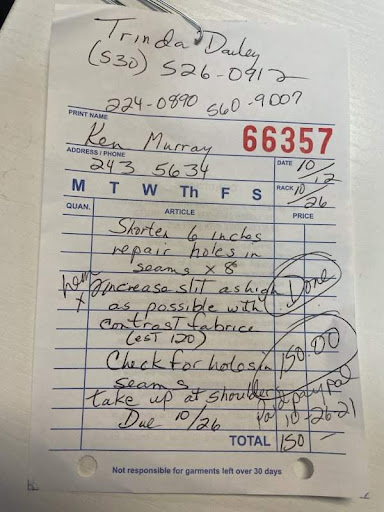 Trinda Dailey
(530) 526-0912
224-0890 560-9007
PRINT NAME
Ken Murray
66357
ADDRESS / PHONE
243 5634
DATE 10/12
M T W Th F S
RACK 10/26
QUAN. ARTICLE PRICE
Shorten 6 inches
repair holes in
seams x 8
hem
+
increase slit as high
Done
as possible with
contrast fabrice
(est 120)
150.00
Check for holes in
seams
take up at shoulders
paypal
Due 10/26
10-26-21
TOTAL 150
Not responsible for garments left over 30 days